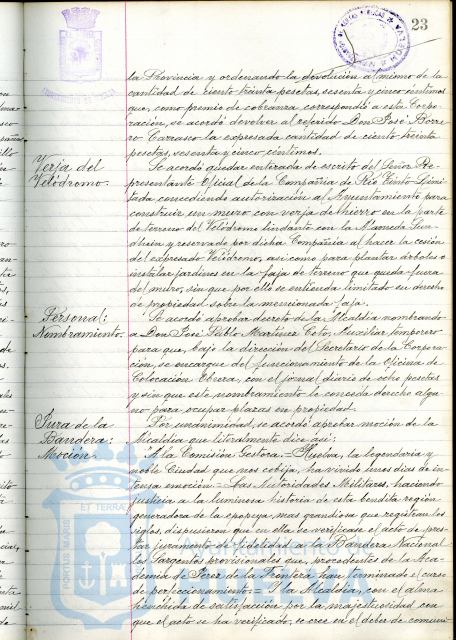 23
la Provincia y ordenando la devolución al mismo de la
cantidad de ciento treinta pesetas, sesenta y cinco céntimos
que, como premio de cobranza correspondió a esta Corpo-
ración, se acordó devolver al referido Don José Borre-
ro Carrasco la expresada cantidad de ciento treinta
pesetas, sesenta y cinco céntimos.
Verja del
Velódromo.
Se acordó quedar enterada de escrito del Señor Re-
presentante Oficial de la Compañía de Rio Tinto Limi-
tada concediendo autorización al Ayuntamiento para
construir un muro con verja de hierro en la parte
de terreno del Velódromo lindante con la Alameda Sun-
dheim y reservado por dicha Compañía al hacer la cesión
del expresado Velódromo, así como para plantar árboles o
instalar jardines en la faja de terreno que queda fuera
del muro, sin que por ello se entienda limitado su derecho
de propiedad sobre la mencionada faja.
Personal:
Nombramiento.
Se acordó aprobar decreto de la Alcaldía nombrando
a Don José Pablo Martínez Coto, Auxiliar temporero
para que, bajo la dirección del Secretario de la Corpora-
ción, se encargue del funcionamiento de la Oficina de
Colocación Obrera, con el jornal diario de ocho pesetas
y sin que este nombramiento le conceda derecho algu-
no para ocupar plazas en propiedad.
Jura de la
Bandera:
Moción.
Por unanimidad, se acordó aprobar moción de la
Alcaldía que literalmente dice así:
A la Comisión Gestora.= Huelva, la legendaria y
noble Ciudad que nos cobija, ha vivido unos días de in-
tensa emoción.= Las Autoridades Militares, haciendo
justicia a la luminosa historia de esta bendita región
generadora de la epopeya mas grandiosa que registran los
siglos, dispusieron que en ella se verificase el acto de pres-
tar juramento de fidelidad a la Bandera Nacional
los Sargentos provisionales que, procedentes de la Aca-
demia de Jerez de la Frontera han terminado el curso
de perfeccionamiento.= Y la Alcaldía, con el alma
henchida de satisfacción por la majestuosidad con
que el acto se ha verificado, se cree en el deber de comuni-
PORTUS MARIS ET TERRAE
Ayuntamiento de
HUELVA